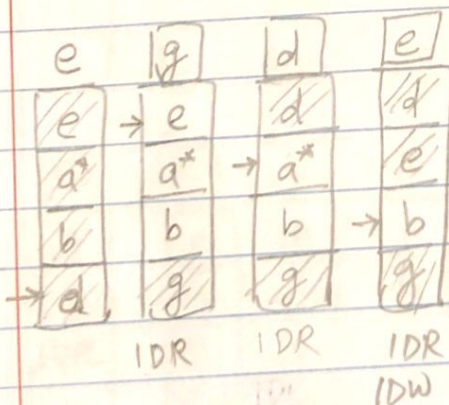 e g d e
e → e d d
a* a* → a* e
b b b → b
→ d g g g
1DR 1DR 1DR
1DW